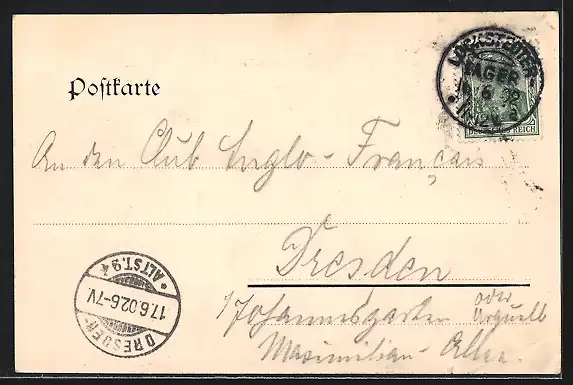 LOCKSTEDTER
LAGER
16.6.02
REICH
Postkarte
An den Club Anglo-Français
Dresden
Johannesgarten oder
Urquell
Maximilian-Allee.
DRESDEN-
17.6.02.6-7V.
* ALTST.94